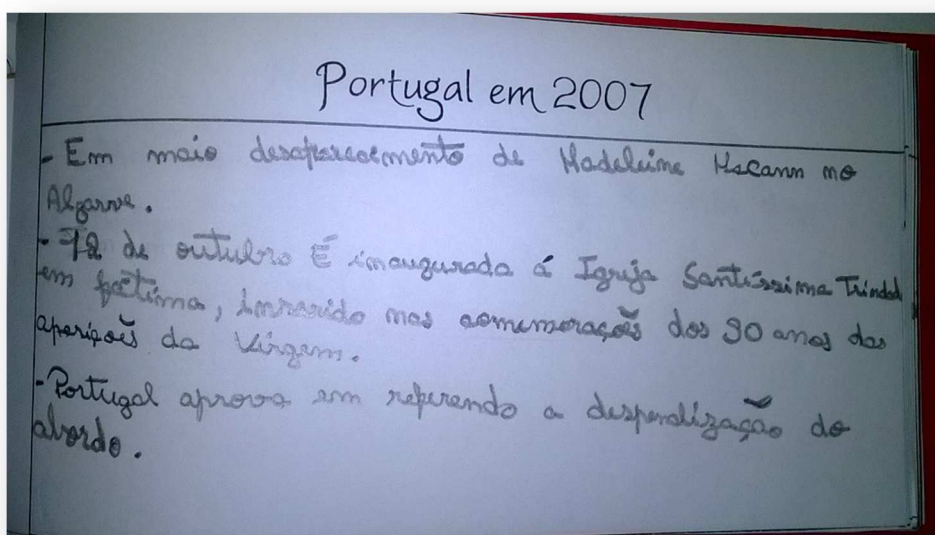 Portugal em 2007
- Em maio desaparecemento de Madeleine Mscann no
Algarve.
- 12 de outubro É inaugurada á Igreja Santíssima Trindad
em fátima, inserido nas comemorações dos 90 anos das
aparições da Virgem.
- Portugal aprova em referendo a despenalização do
abordo.